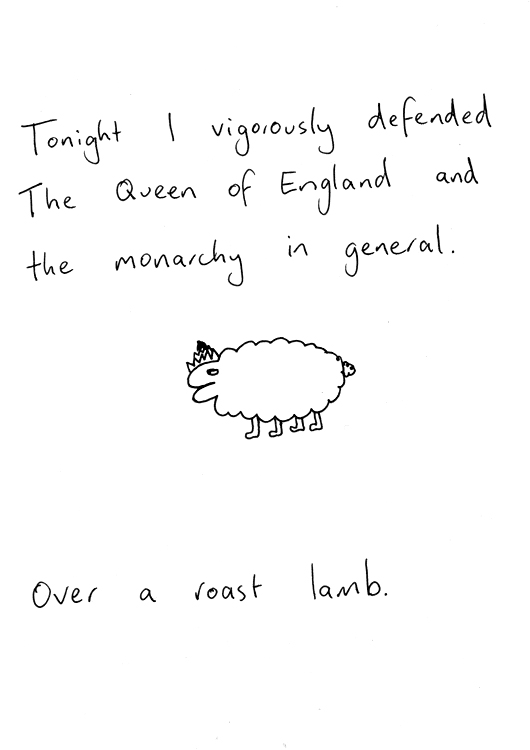 Tonight I vigorously defended
The Queen of England and
the monarchy in general.
Over a roast lamb.